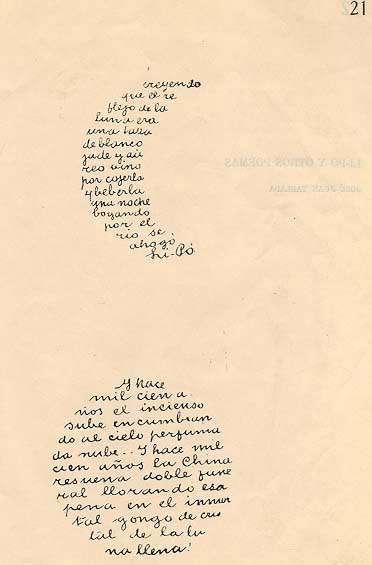 21
creyendo
que el re
flejo de la
luna era
una taza
de blanco
jade y aú
reo vino
por cojerla
y beberla
una noche
bogando
por el
rio se
ahogó
Li-Pó
LI-PO Y OTROS POEMAS
JOSÉ JUAN TABLADA
Y hace
mil cien a
ños el incienso
sube encumbran
do al cielo perfuma
da nube... Y hace mil
cien años la China
resuena doble fune
ral llorando esa
pena en el inmor
tal gongo de cris
tal de la lu
na llena!